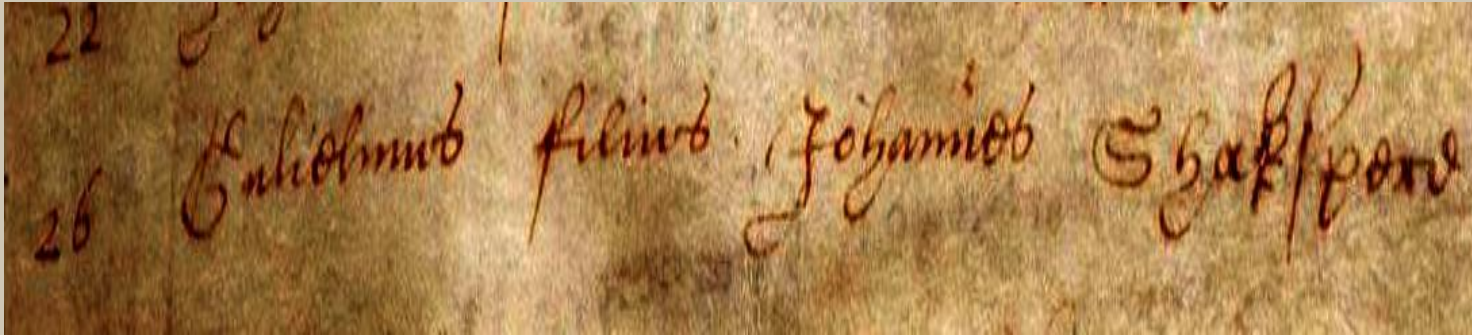 22
26 Gulielmus filius Johannes Shakspere